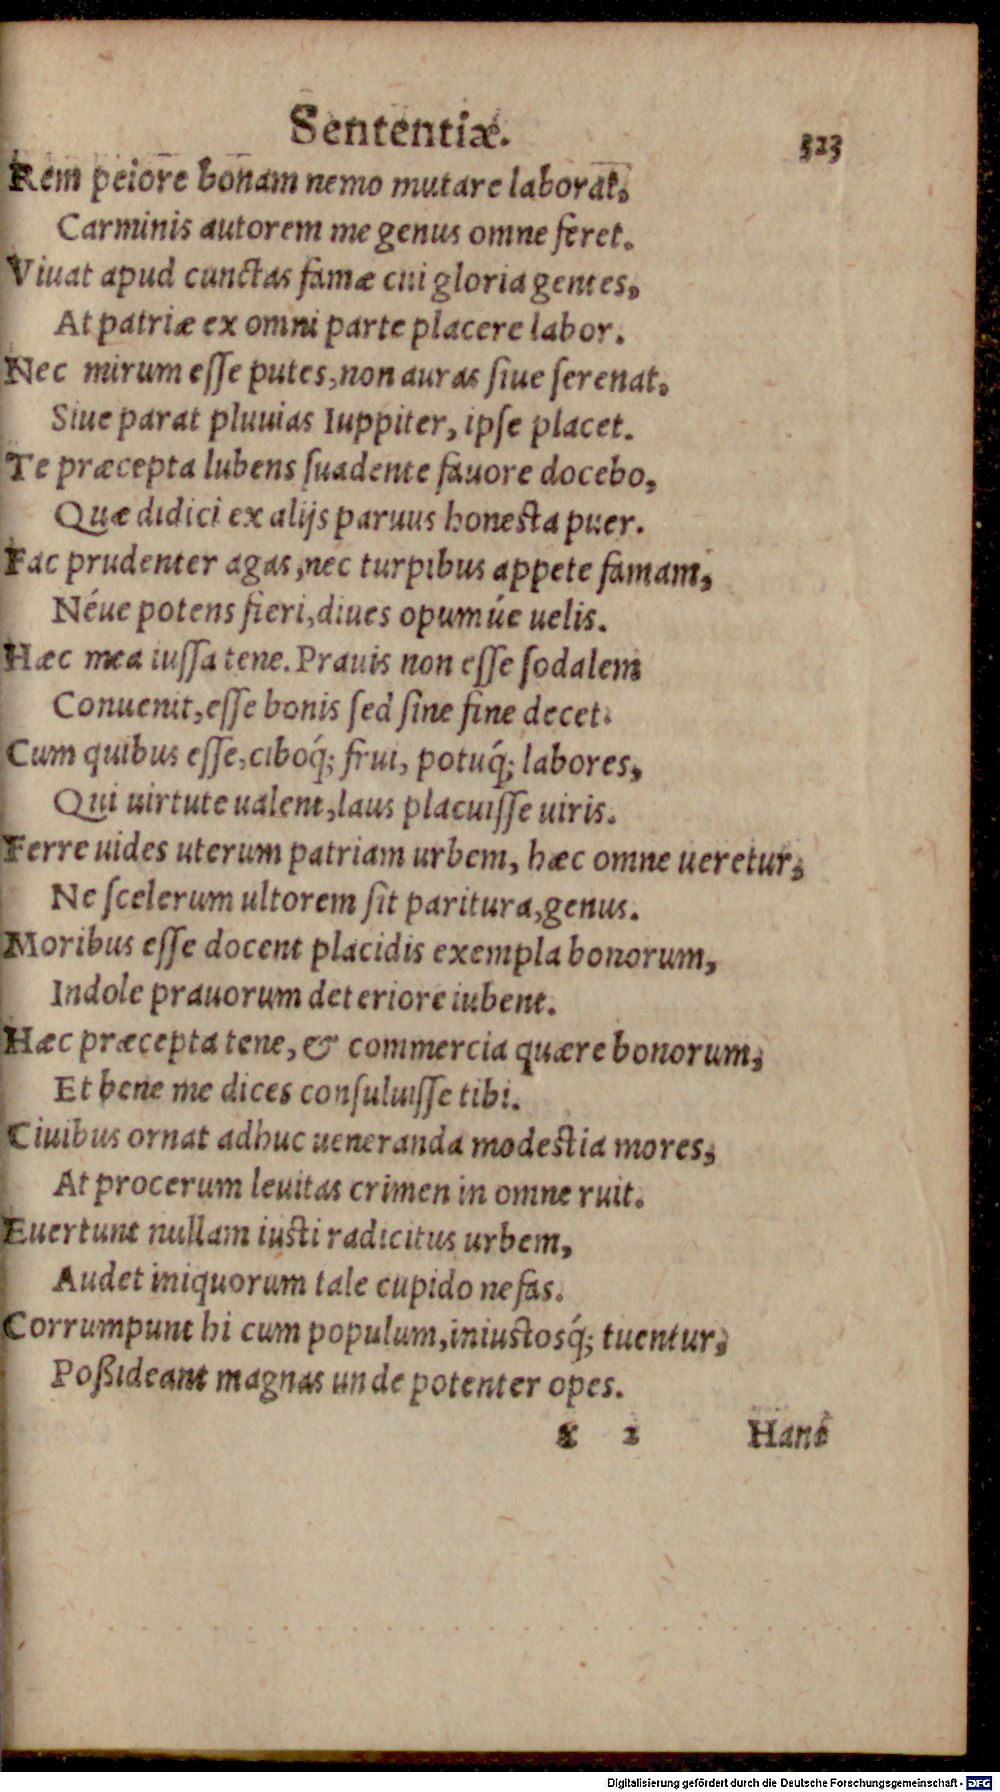 Sententiæ. 323
Rem peiore bonam nemo mutare laborat,
Carminis autorem me genus omne feret.
Viuat apud cunctas famæ cui gloria gentes,
At patriæ ex omni parte placere labor.
Nec mirum esse putes, non auras siue serenat,
Siue parat pluuias Iuppiter, ipse placet.
Te præcepta lubens suadente fauore docebo,
Quæ didici ex alijs paruus honesta puer.
Fac prudenter agas, nec turpibus appete famam,
Néue potens fieri, diues opumúe uelis.
Hæc mea iussa tene. Prauis non esse sodalem
Conuenit, esse bonis sed sine fine decet.
Cum quibus esse, ciboq́; frui, potuq́; labores,
Qui uirtute ualent, laus placuisse uiris.
Ferre uides uterum patriam urbem, hæc omne ueretur,
Ne scelerum ultorem sit paritura, genus.
Moribus esse docent placidis exempla bonorum,
Indole prauorum deteriore iubent.
Hæc præcepta tene, & commercia quære bonorum,
Et bene me dices consuluisse tibi.
Ciuibus ornat adhuc ueneranda modestia mores,
At procerum leuitas crimen in omne ruit.
Euertunt nullam iusti radicitus urbem,
Audet iniquorum tale cupido nefas.
Corrumpunt hi cum populum, iniustosq́; tuentur,
Poßideant magnas unde potenter opes.
2 Hanc
Digitalisierung gefördert durch die Deutsche Forschungsgemeinschaft - DFG